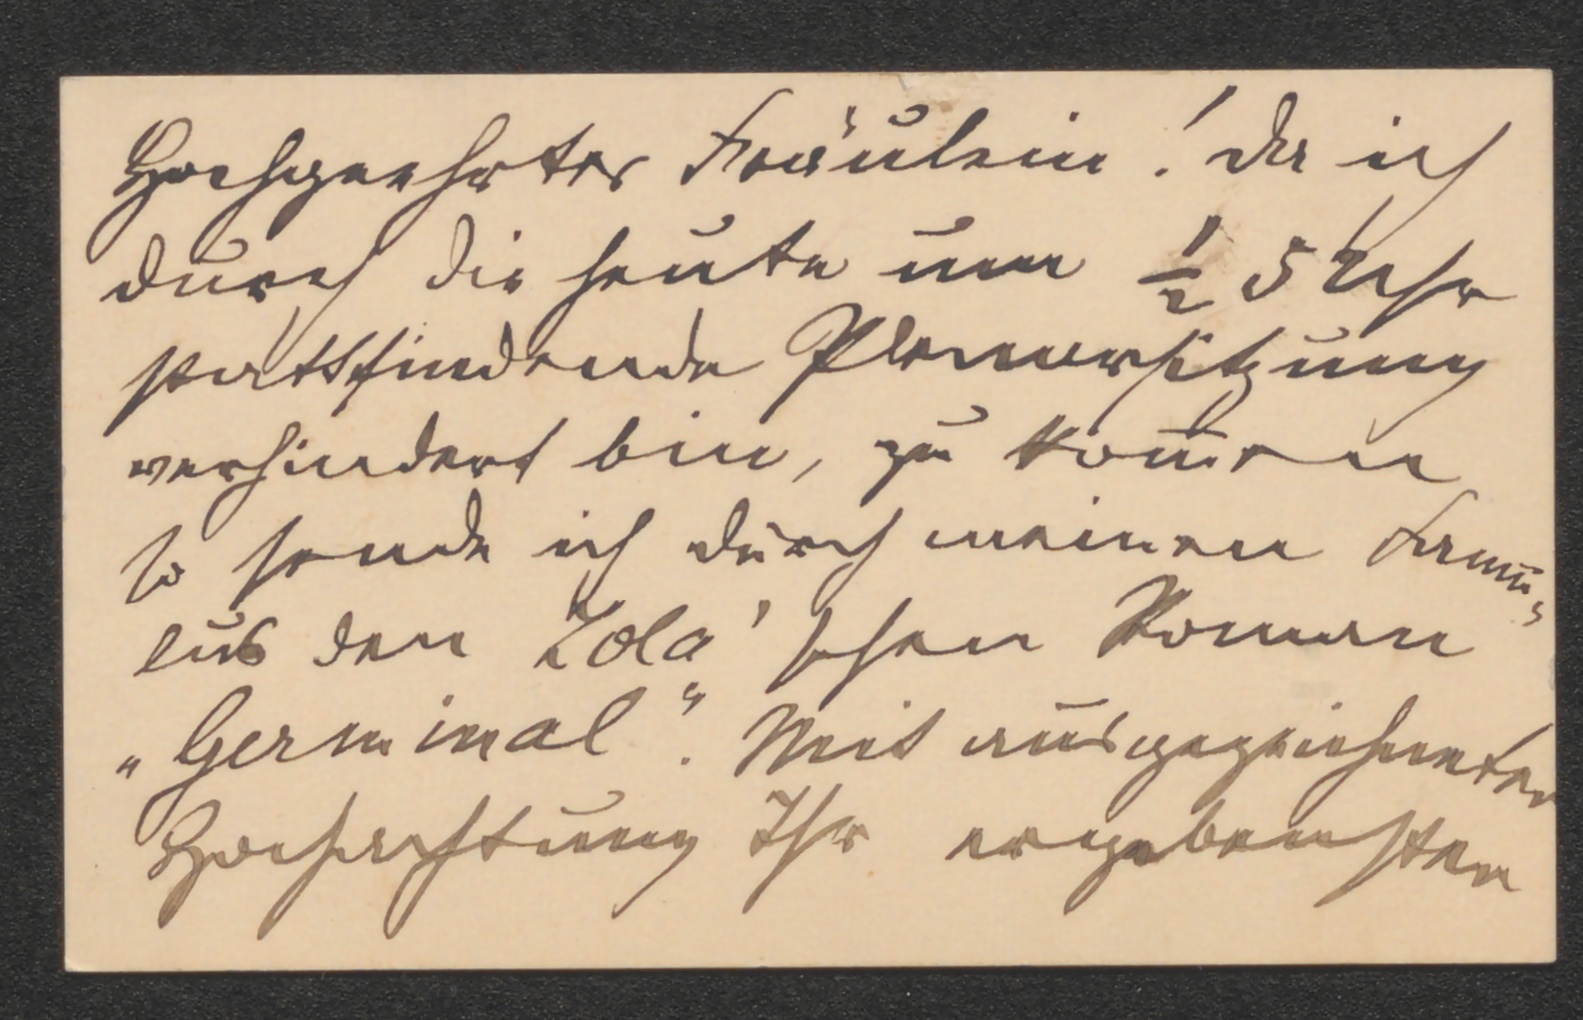 Hochgeehrtes Fräulein! Da ich
durch die heute um ½ 5 Uhr
stattfindende Plenarsitzung
verhindert bin, zu kom̄en
so sende ich durch meinen Famu-
lus den Zola'schen Roman
„Germinal“. Mit ausgezeichneter
Hochachtung Ihr ergebenster